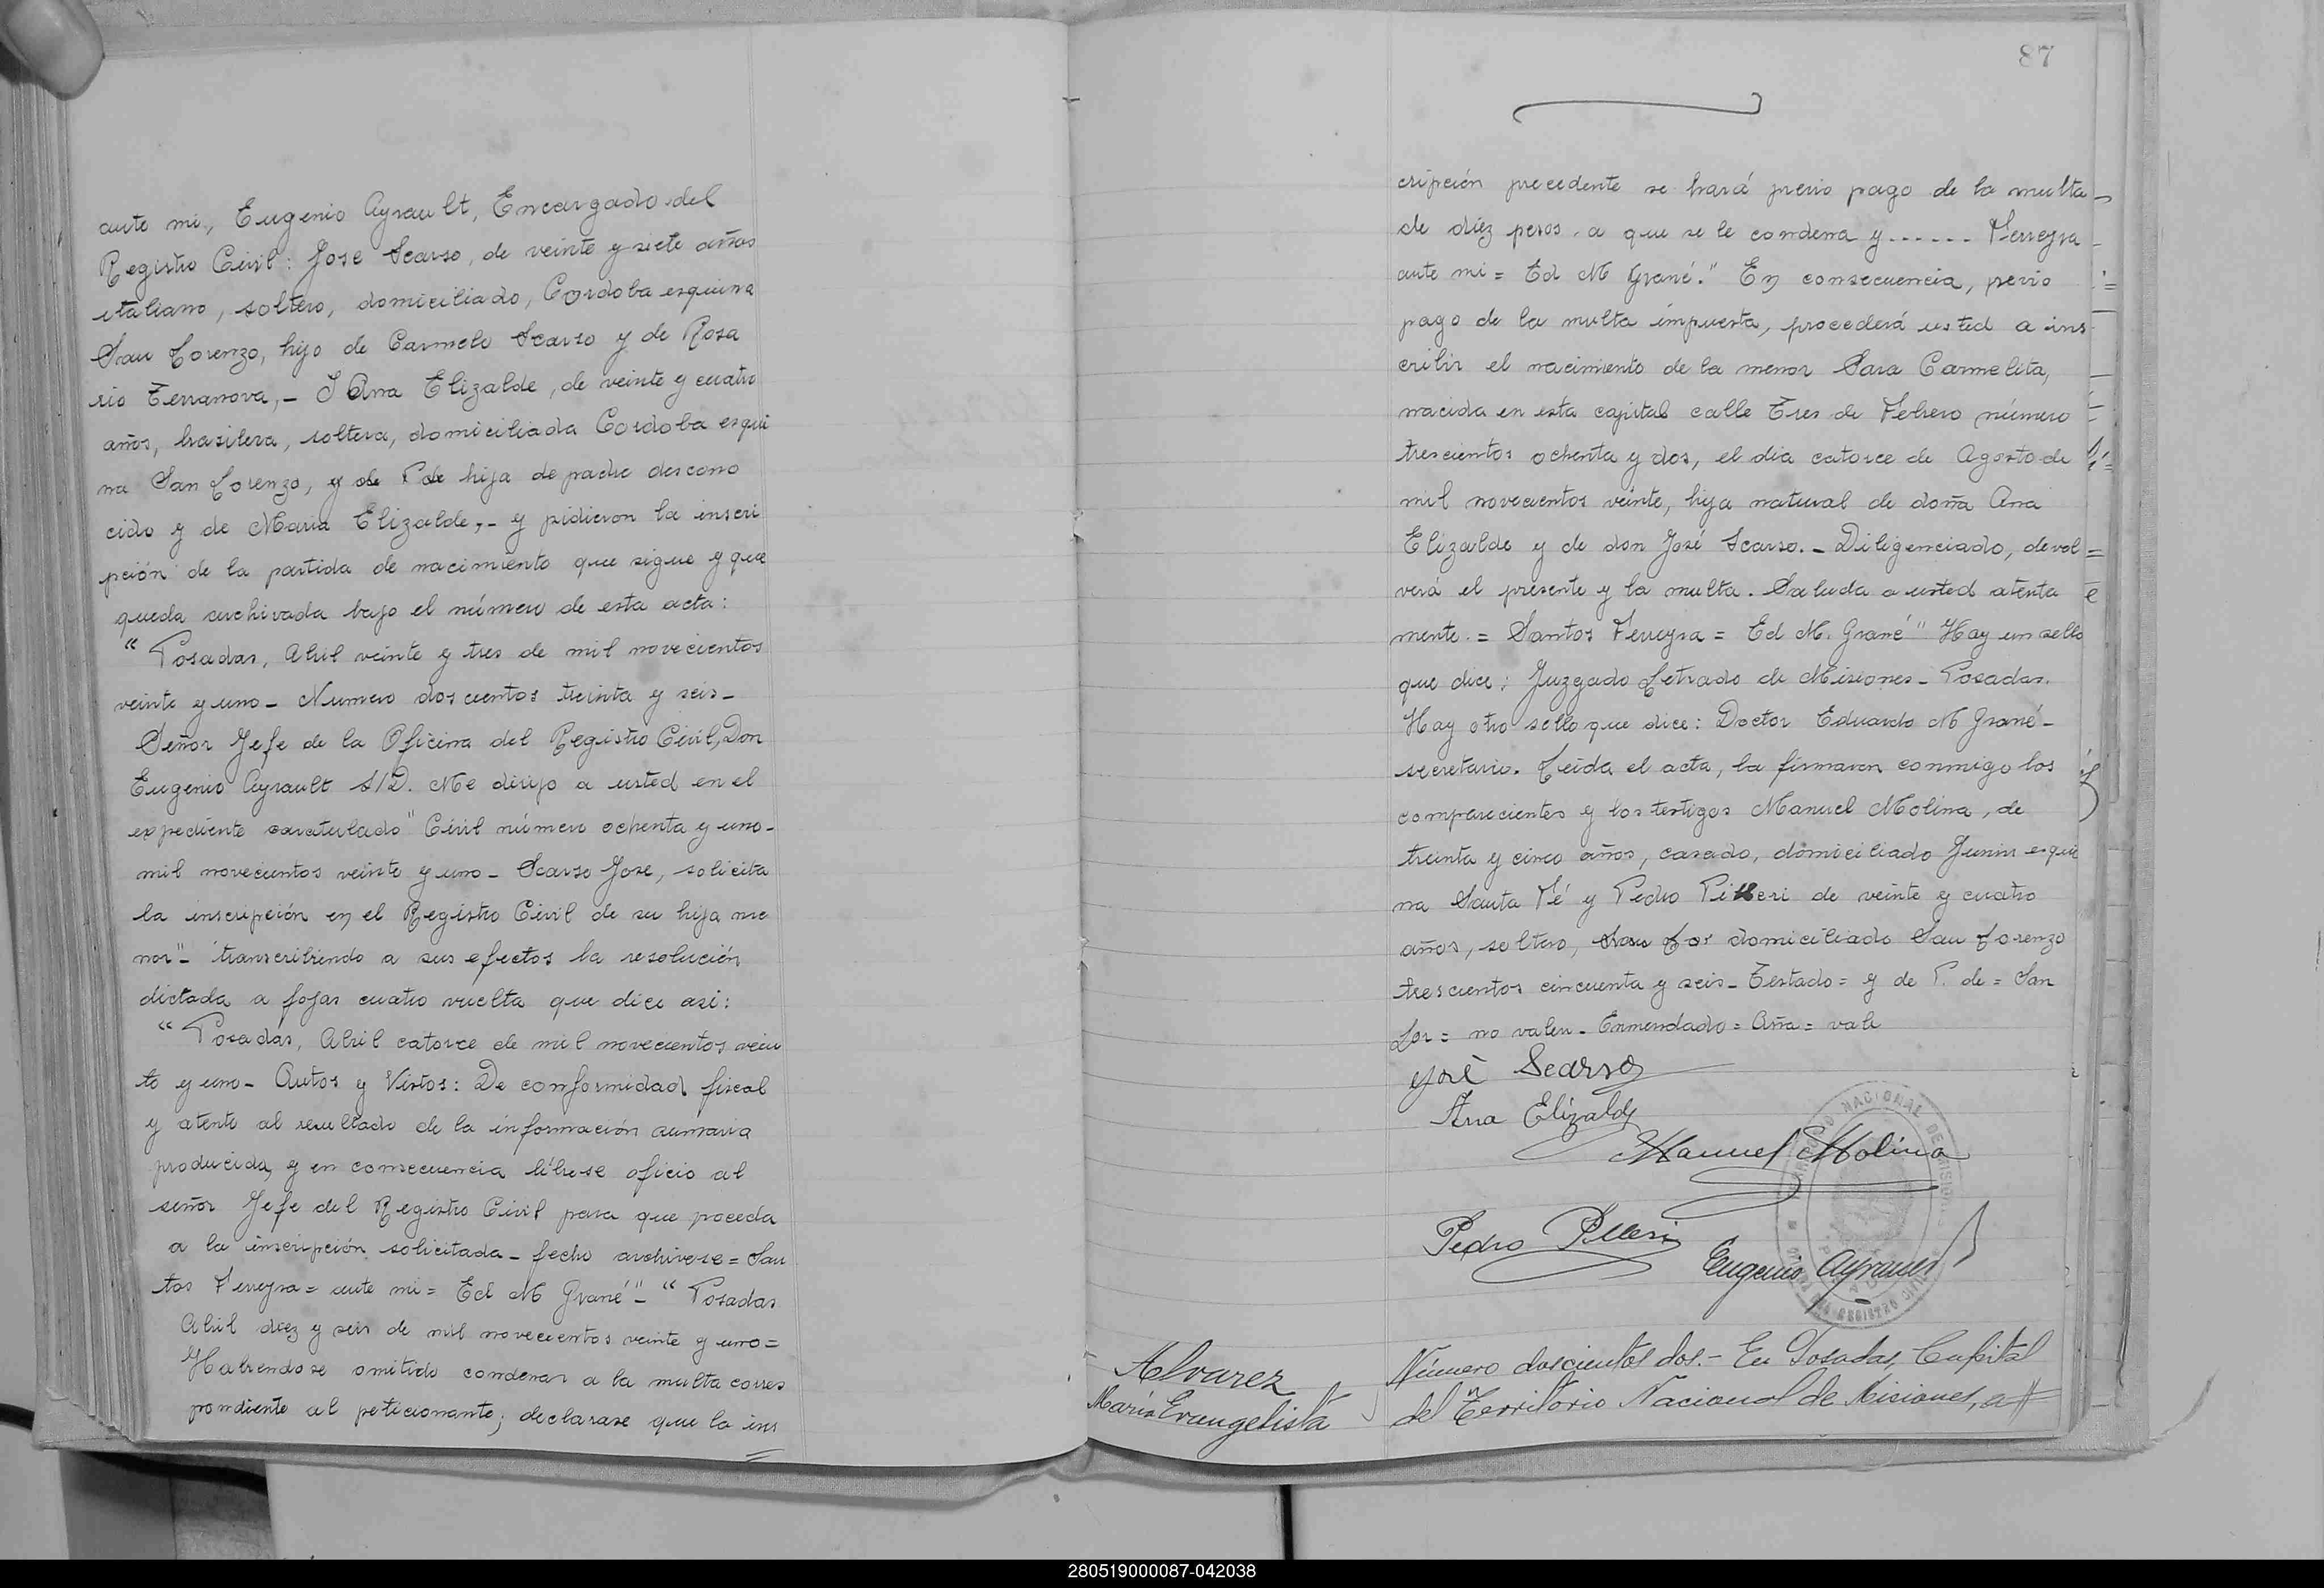 ante mi, Eugenio Ayrault, Encargado del
Registro Civil: Jose Scarso, de veinte y siete años
italiano, soltero, domiciliado, Cordoba esquina
San Lorenzo, hijo de Carmelo Scarso y de Rosa
rio Terranova,- I Ana Elizalde, de veinte y cuatro
años, brasilera, soltera, domiciliada Cordoba esqui
na San Lorenzo, y de P de hija de padre descono
cido y de Maria Elizalde,- y pidieron la inscri
pción de la partida de nacimiento que sigue y que
queda archivada bajo el número de esta acta:
"Posadas, Abril veinte y tres de mil novecientos
veinte y uno- Numero doscientos treinta y seis-
Señor Jefe de la Oficina del Registro Civil, Don
Eugenio Ayrault S/D. Me dirijo a usted en el
expediente caratulado "Civil número ochenta y uno-
mil novecientos veinte y uno- Scarso Jose, solicita
la inscripción en el Registro Civil de su hija me
nor"- transcribiendo a sus efectos la resolución
dictada a fojas cuatro vuelta que dice asi:
"Posadas, Abril catorce de mil novecientos vein
te y uno- Autos y Vistos: De conformidad fiscal
y atento al resultado de la información sumaria
producida, y en consecuencia líbrese oficio al
señor Jefe del Registro Civil para que proceda
a la inscripción solicitada- fecho archivese= San
tos Ferreyra= ante mi= Ed M Grané"- "Posadas
Abril diez y seis de mil novecientos veinte y uno=
Habiendose omitido condenar a la multa corres
pondiente al peticionante; declarase que la ins
87
cripción precedente se hará previo pago de la multa
de diez pesos. a que se le condena y ...... Ferreyra
ante mi= Ed M Grané." En consecuencia, previo
pago de la multa impuesta, procederá usted a ins
cribir el nacimiento de la menor Sara Carmelita,
nacida en esta capital calle Tres de Febrero número
trescientos ochenta y dos, el dia catorce de Agosto de
mil novecientos veinte, hija natural de doña Ana
Elizalde y de don José Scarso.- Diligenciado, devol
verá el presente y la multa. Saluda a usted atenta
mente.= Santos Ferreyra= Ed M. Grané" Hay un sello
que dice: Juzgado Letrado de Misiones- Posadas.
Hay otro sello que dice: Doctor Eduardo M Grané-
secretario. Leida el acta, la firmaron conmigo los
comparecientes y los testigos Manuel Molina, de
treinta y cinco años, casado, domiciliado Junin esqui
na Santa Fé y Pedro Pilleri de veinte y cuatro
años, soltero, San Lor domiciliado San Lorenzo
trescientos cincuenta y seis- Testado= y de P. de= San
Lor= no valen- Enmendado= Ana= vale
José Scarso
Ana Elizalde
Manuel Molina
Pedro Pilleri
Eugenio Ayrault
Alvarez
María Evangelista
Número doscientos dos.- En Posadas, Capital
del Territorio Nacional de Misiones, a
280519000087-042038